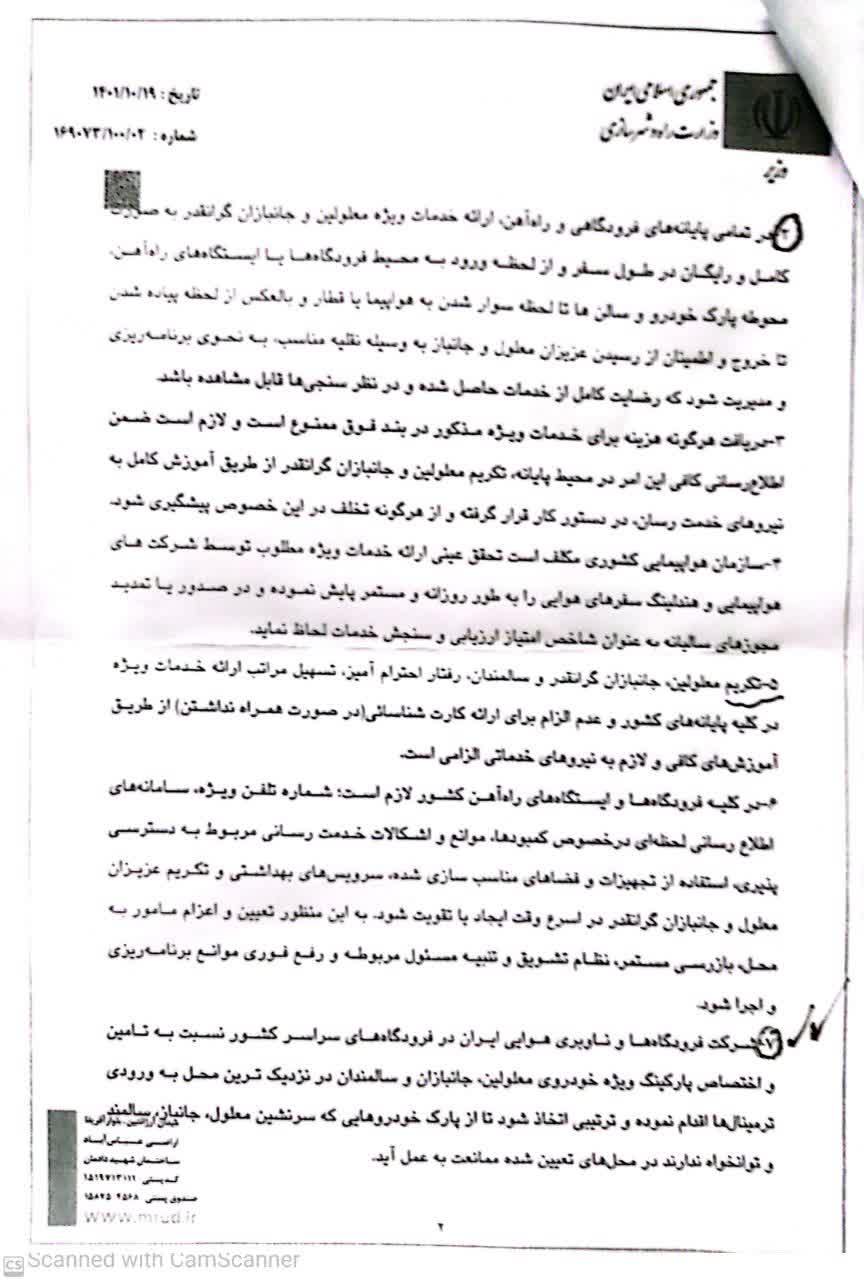 جمهوری اسلامی ایران
وزارت راه و شهرسازی
وزیر
تاریخ : ۱۴۰۱/۱۰/۱۹
شماره : ۱۶۹۰۷۳/۱۰۰/۰۲
۲-در تمامی پایانه‌های فرودگاهی و راه‌آهن، ارائه خدمات ویژه معلولین و جانبازان گرانقدر به صورت
کامل و رایگان در طول سفر و از لحظه ورود به محیط فرودگاه‌ها یا ایستگاه‌های راه‌آهن،
محوطه پارک خودرو و سالن ها تا لحظه سوار شدن به هواپیما یا قطار و بالعکس از لحظه پیاده شدن
تا خروج و اطمینان از رسیدن عزیزان معلول و جانباز به وسیله نقلیه مناسب، به نحوی برنامه‌ریزی
و مدیریت شود که رضایت کامل از خدمات حاصل شده و در نظر سنجی‌ها قابل مشاهده باشد.
۳-دریافت هرگونه هزینه برای خدمات ویژه مذکور در بند فوق ممنوع است و لازم است ضمن
اطلاع‌رسانی کافی این امر در محیط پایانه، تکریم معلولین و جانبازان گرانقدر از طریق آموزش کامل به
نیروهای خدمت رسان، در دستور کار قرار گرفته و از هرگونه تخلف در این خصوص پیشگیری شود.
۴-سازمان هواپیمایی کشوری مکلف است تحقق عینی ارائه خدمات ویژه مطلوب توسط شرکت های
هواپیمایی و هندلینگ سفرهای هوایی را به طور روزانه و مستمر پایش نموده و در صدور یا تمدید
مجوزهای سالیانه به عنوان شاخص امتیاز ارزیابی و سنجش خدمات لحاظ نماید.
۵-تکریم معلولین، جانبازان گرانقدر و سالمندان، رفتار احترام آمیز، تسهیل مراتب ارائه خدمات ویژه
در کلیه پایانه‌های کشور و عدم الزام برای ارائه کارت شناسائی(در صورت همراه نداشتن) از طریق
آموزش‌های کافی و لازم به نیروهای خدماتی الزامی است.
۶-در کلیه فرودگاه‌ها و ایستگاه‌های راه‌آهن کشور لازم است؛ شماره تلفن ویژه، سامانه‌های
اطلاع رسانی لحظه‌ای درخصوص کمبودها، موانع و اشکالات خدمت رسانی مربوط به دسترسی
پذیری، استفاده از تجهیزات و فضاهای مناسب سازی شده، سرویس‌های بهداشتی و تکریم عزیزان
معلول و جانبازان گرانقدر در اسرع وقت ایجاد یا تقویت شود. به این منظور تعیین و اعزام مامور به
محل، بازرسی مستمر، نظام تشویق و تنبیه مسئول مربوطه و رفع فوری موانع برنامه‌ریزی
و اجرا شود.
۷-شرکت فرودگاه‌ها و ناوبری هوایی ایران در فرودگاه‌های سراسر کشور نسبت به تامین
و اختصاص پارکینگ ویژه خودروی معلولین، جانبازان و سالمندان در نزدیک ترین محل به ورودی
ترمینال‌ها اقدام نموده و ترتیبی اتخاذ شود تا از پارک خودروهایی که سرنشین معلول، جانباز، سالمند
و توانخواه ندارند در محل‌های تعیین شده ممانعت به عمل آید.
میدان آرژانتین - بلوار آفریقا
اراضی عباس آباد
ساختمان شهید دادمان
کدپستی ۱۵۱۹۷۱۳۱۱۱
صندوق پستی ۴۵۶۸ ۱۵۸۷۵
www.mrud.ir
۲
CS Scanned with CamScanner